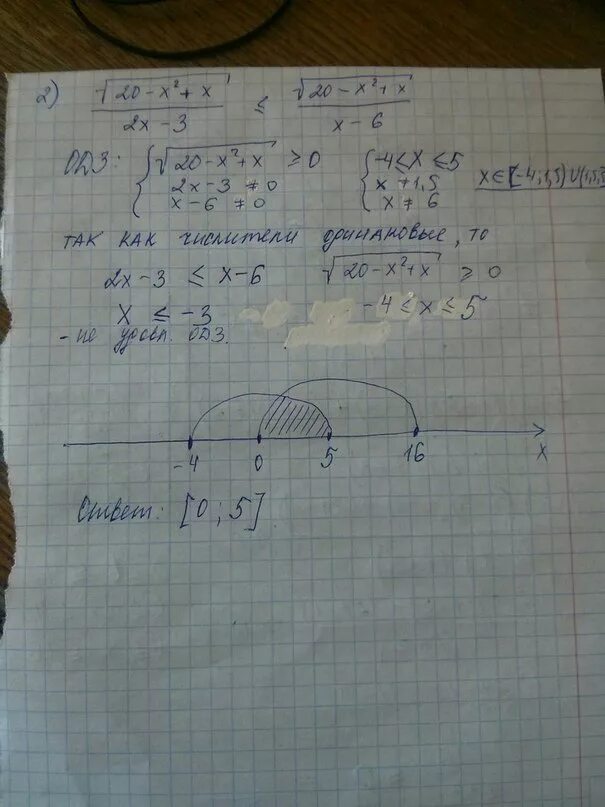 2) √(20 - x² + x) / (2x - 3) ≤ √(20 - x² + x) / (x - 6)
ОДЗ: { √(20 - x² + x) ≥ 0 { -4 ≤ x ≤ 5
2x - 3 ≠ 0 x ≠ 1,5 x ∈ [-4; 1,5) ∪ (1,5;
x - 6 ≠ 0 x ≠ 6
ТАК КАК числители одинаковые, то
2x - 3 ≤ x - 6 √(20 - x² + x) ≥ 0
x ≤ -3 -4 ≤ x ≤ 5
- не удовл. ОДЗ.
-4 0 5 16 x
Ответ: [0; 5]